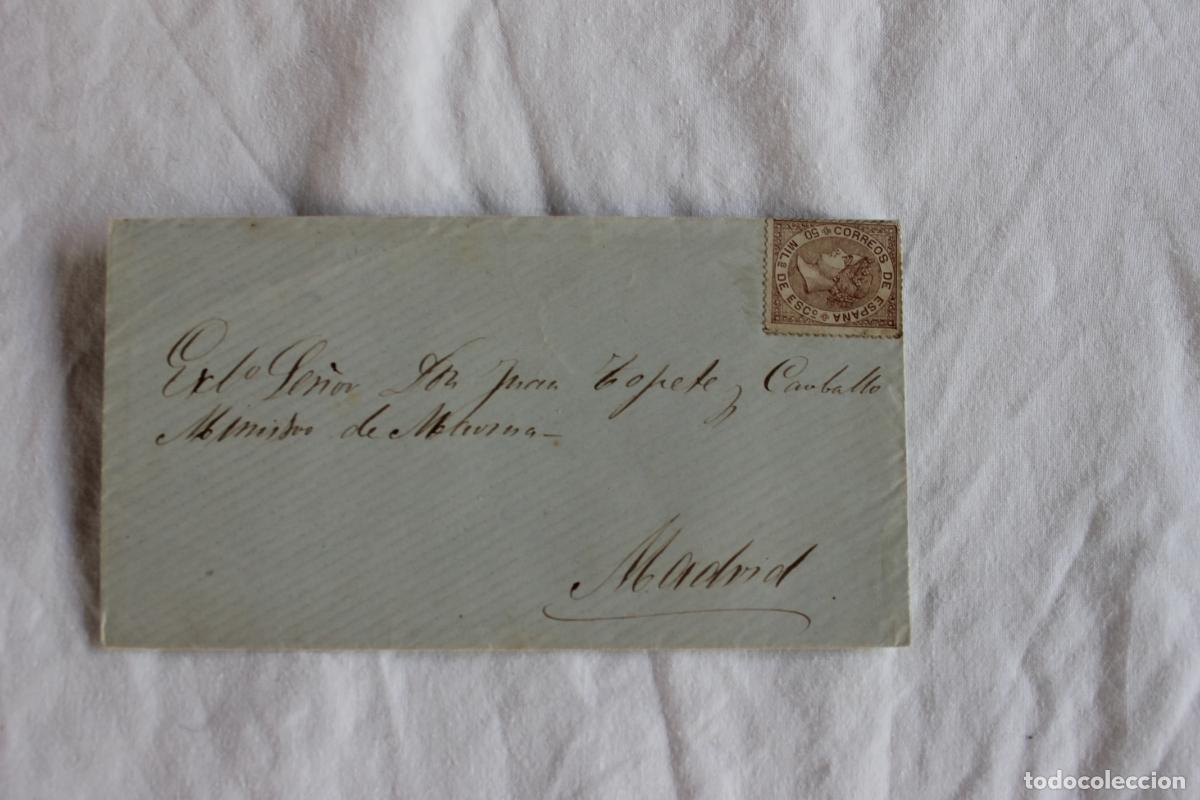 CORREOS DE ESPAÑA
50 MIL.s DE ESC.o
Exlo Señor Don Juan Topete y Carballo
Ministro de Marina–
Madrid
todocoleccion